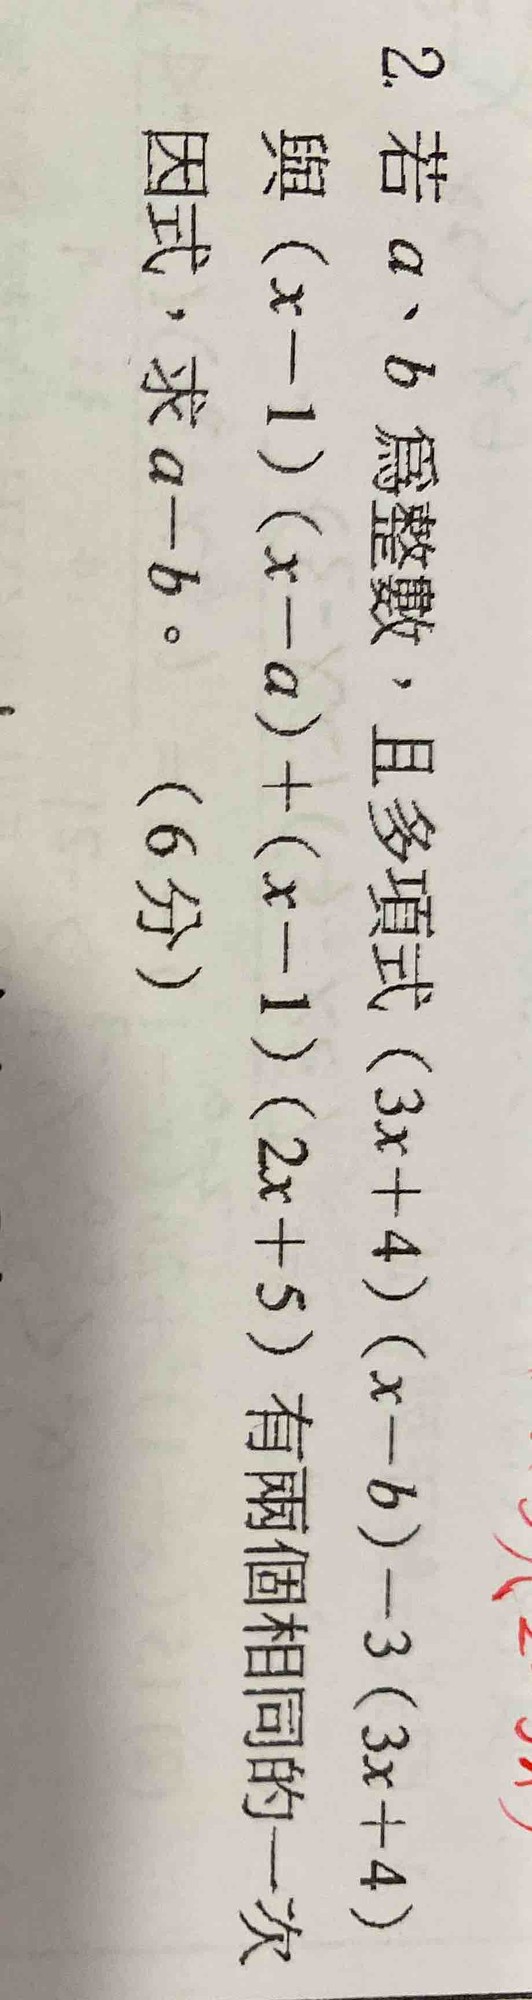 2. 若 a、b 為整數，且多項式（3x＋4）（x－b）－3（3x＋4）
與（x－1）（x－a）＋（x－1）（2x＋5）有兩個相同的一次
因式，求a－b。（6分）